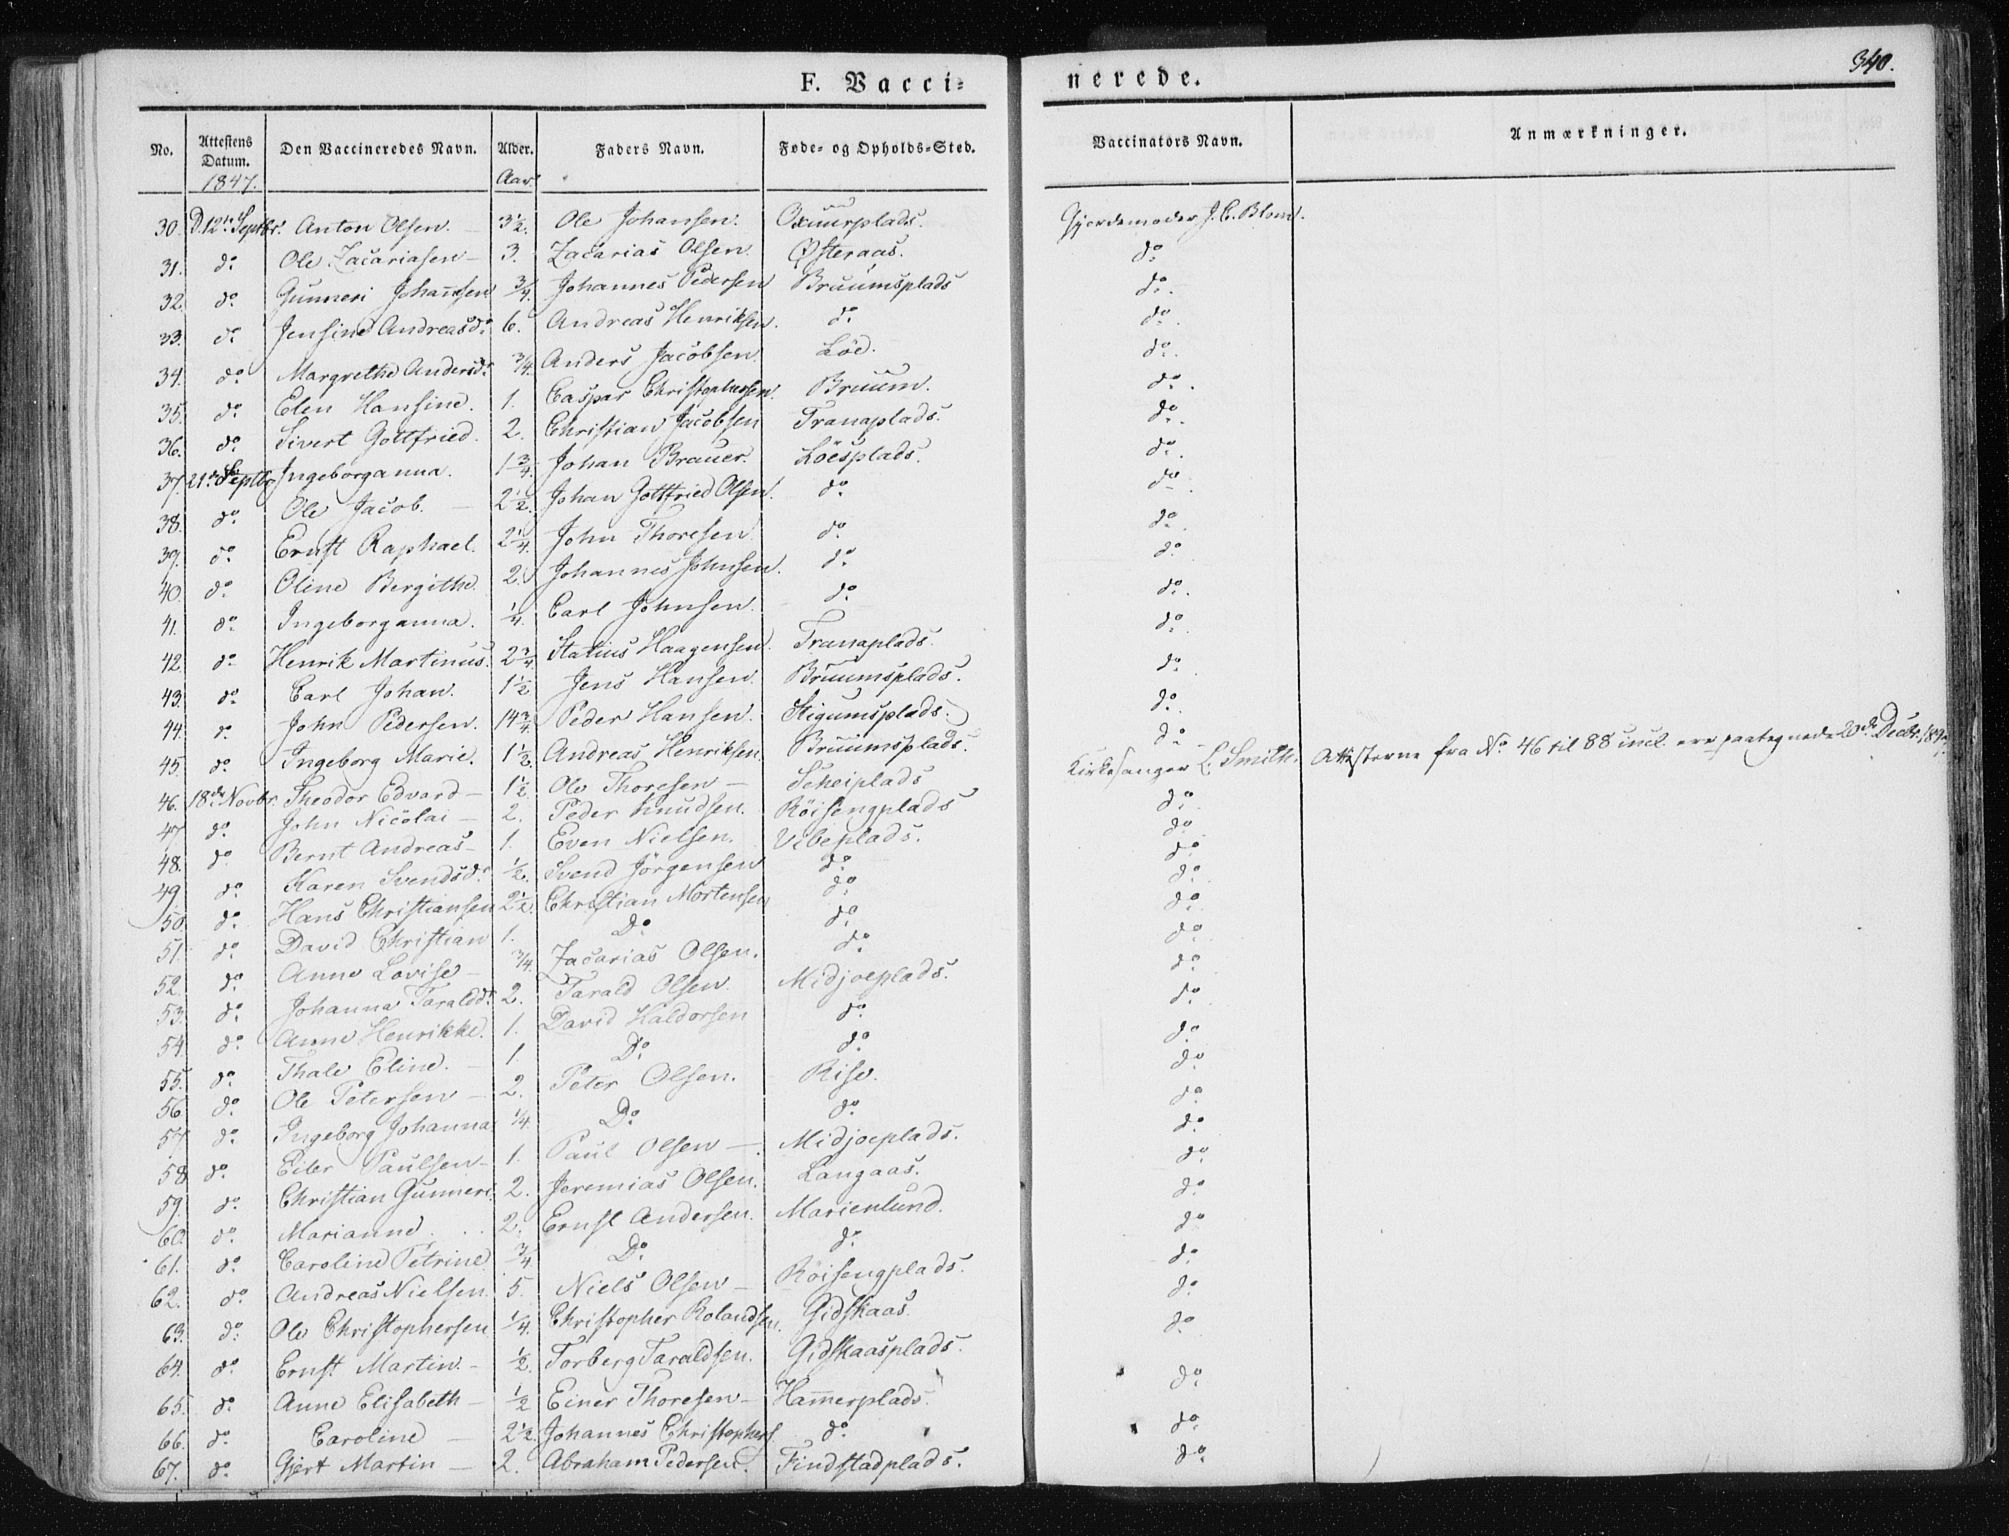 340.
F. Vacci=nerede.
No. Attestens Datum. Den Vaccineredes Navn. Alder. Faders Navn. Føde- og Opholds-Sted. Vaccinators Navn. Anmærkninger.
1847. Aar.
30. D. 12te Septbr. Anton Olsen. 3½. Ole Johansen. Oxuurplads. Gjordemoder J. C. Blom.
31. do Ole Zacariasen 3. Zacarias Olsen. Østeraas. do
32. do Gunneri Johansen ¾. Johannes Pedersen Bruumsplads do
33. do Jensine Andreasdr. 6. Andreas Henriksen. do do
34. do Margrethe Andersdr. ¾. Anders Jacobsen. Löe. do
35. do Elen Hansine. 1. Caspar Christophersen. Bruum. do
36. do Sivert Gottfried. 2. Christian Jacobsen Tranaplads. do
37. 21de Septbr Ingeborganna. 1¾. Johan Brauer. Löesplads. do
38. do Ole Jacob. 2½. Johan Gottfried Olsen. do do
39. do Ernst Raphael. 2¼. John Thoresen do do
40. do Oline Bergithe 2. Johannes Johnsen. do do
41. do Ingeborganna. ¼. Carl Johnsen. do do
42. do Henrik Martinus. 2¾. Statius Haagensen. Tranaplads. do
43. do Carl Johan. 1½ Jens Hansen. Bruumsplads. do
44. do John Pedersen. 14¾. Peder Hansen. Stigumsplads. do
45. do Ingeborg Marie. 1½. Andreas Henriksen. Bruumsplads. do
46. 18de Novbr. Theodor Edvard 1½ Ole Thoresen Scheiplads Kirkesanger L. Smith. Attesterne fra No 46 til 88 incl. ere paategnede 20de Decbr. 1847.
47 do John Nicolai 2. Peder Knudsen. Röisengplads do
48. do Bernt Andreas 1. Even Nielsen. Vibeplads. do
49 do Karen Svendsdr. ½. Svend Jörgensen do do
50. do Hans Christiansen 2½. Christian Mortensen do do
51. do David Christian 1. Do do do
52. do Anne Lovise ¾. Zacarias Olsen. do do
53. do Johanna Taraldsdr. 2. Tarald Olsen. Midjoeplads. do
54. do Anne Henrikke. 1. David Haldorsen do do
55. do Thale Eline. 1. Do do do
56. do Ole Petersen 2. Peter Olsen. Rise. do
57. do Ingeborg Johanna ¼. Do do do
58 do Eiler Paulsen 1. Paul Olsen Midjoeplads. do
59. do Christian Gunneri. 2. Jeremias Olsen. Langaas. do
60. do Marianne 2. Ernst Andersen. Marienlund. do
61. do Caroline Petrine ¾. Do do do
62. do Andreas Nielsen. 5. Niels Olsen Röisengplads. do
63. do Ole Christophersen ¼. Christopher Rolandsen. Gidskaas. do
64. do Ernst Martin. ½. Torberg Taraldsen. Gidskaasplads. do
65. do Anne Elisabeth ½ Einer Thoresen Hamerplads. do
66. do Caroline 2½. Johannes Christophers. do do
67. do Gjert Martin 2. Abraham Pedersen. Findstadplads. do